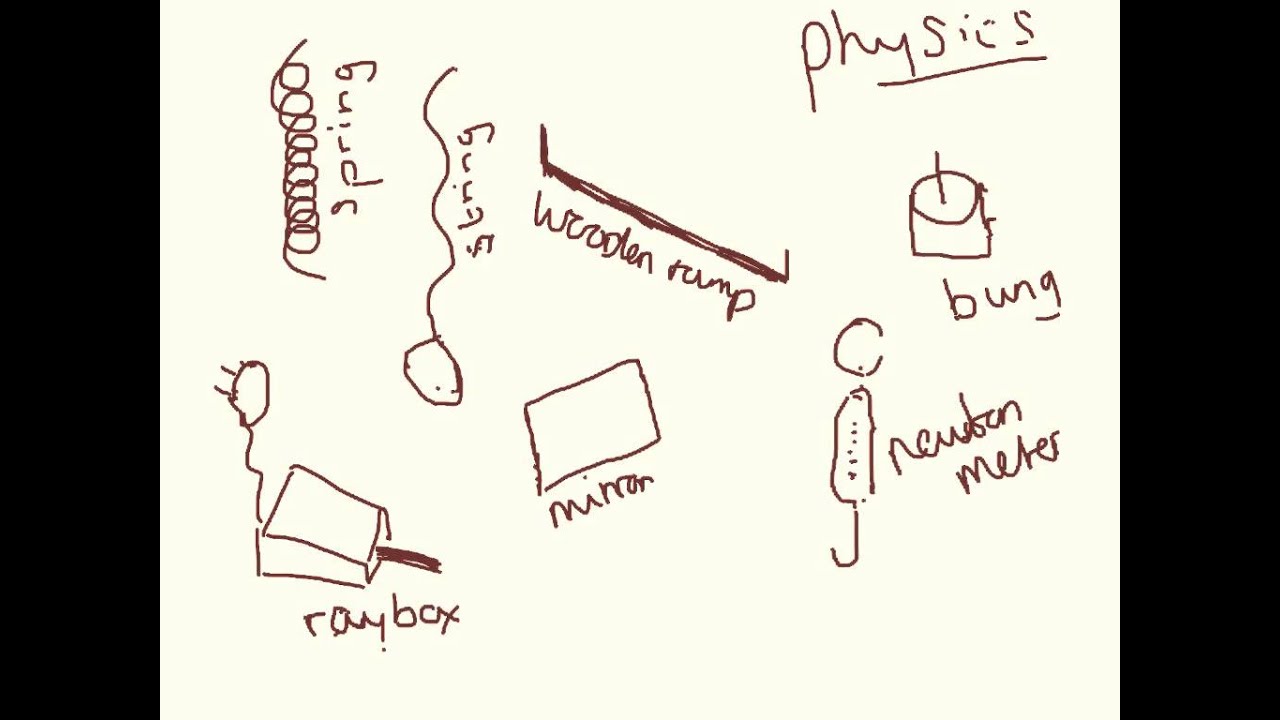 physics
spring
string
wooden ramp
bung
newton
meter
mirror
raybox